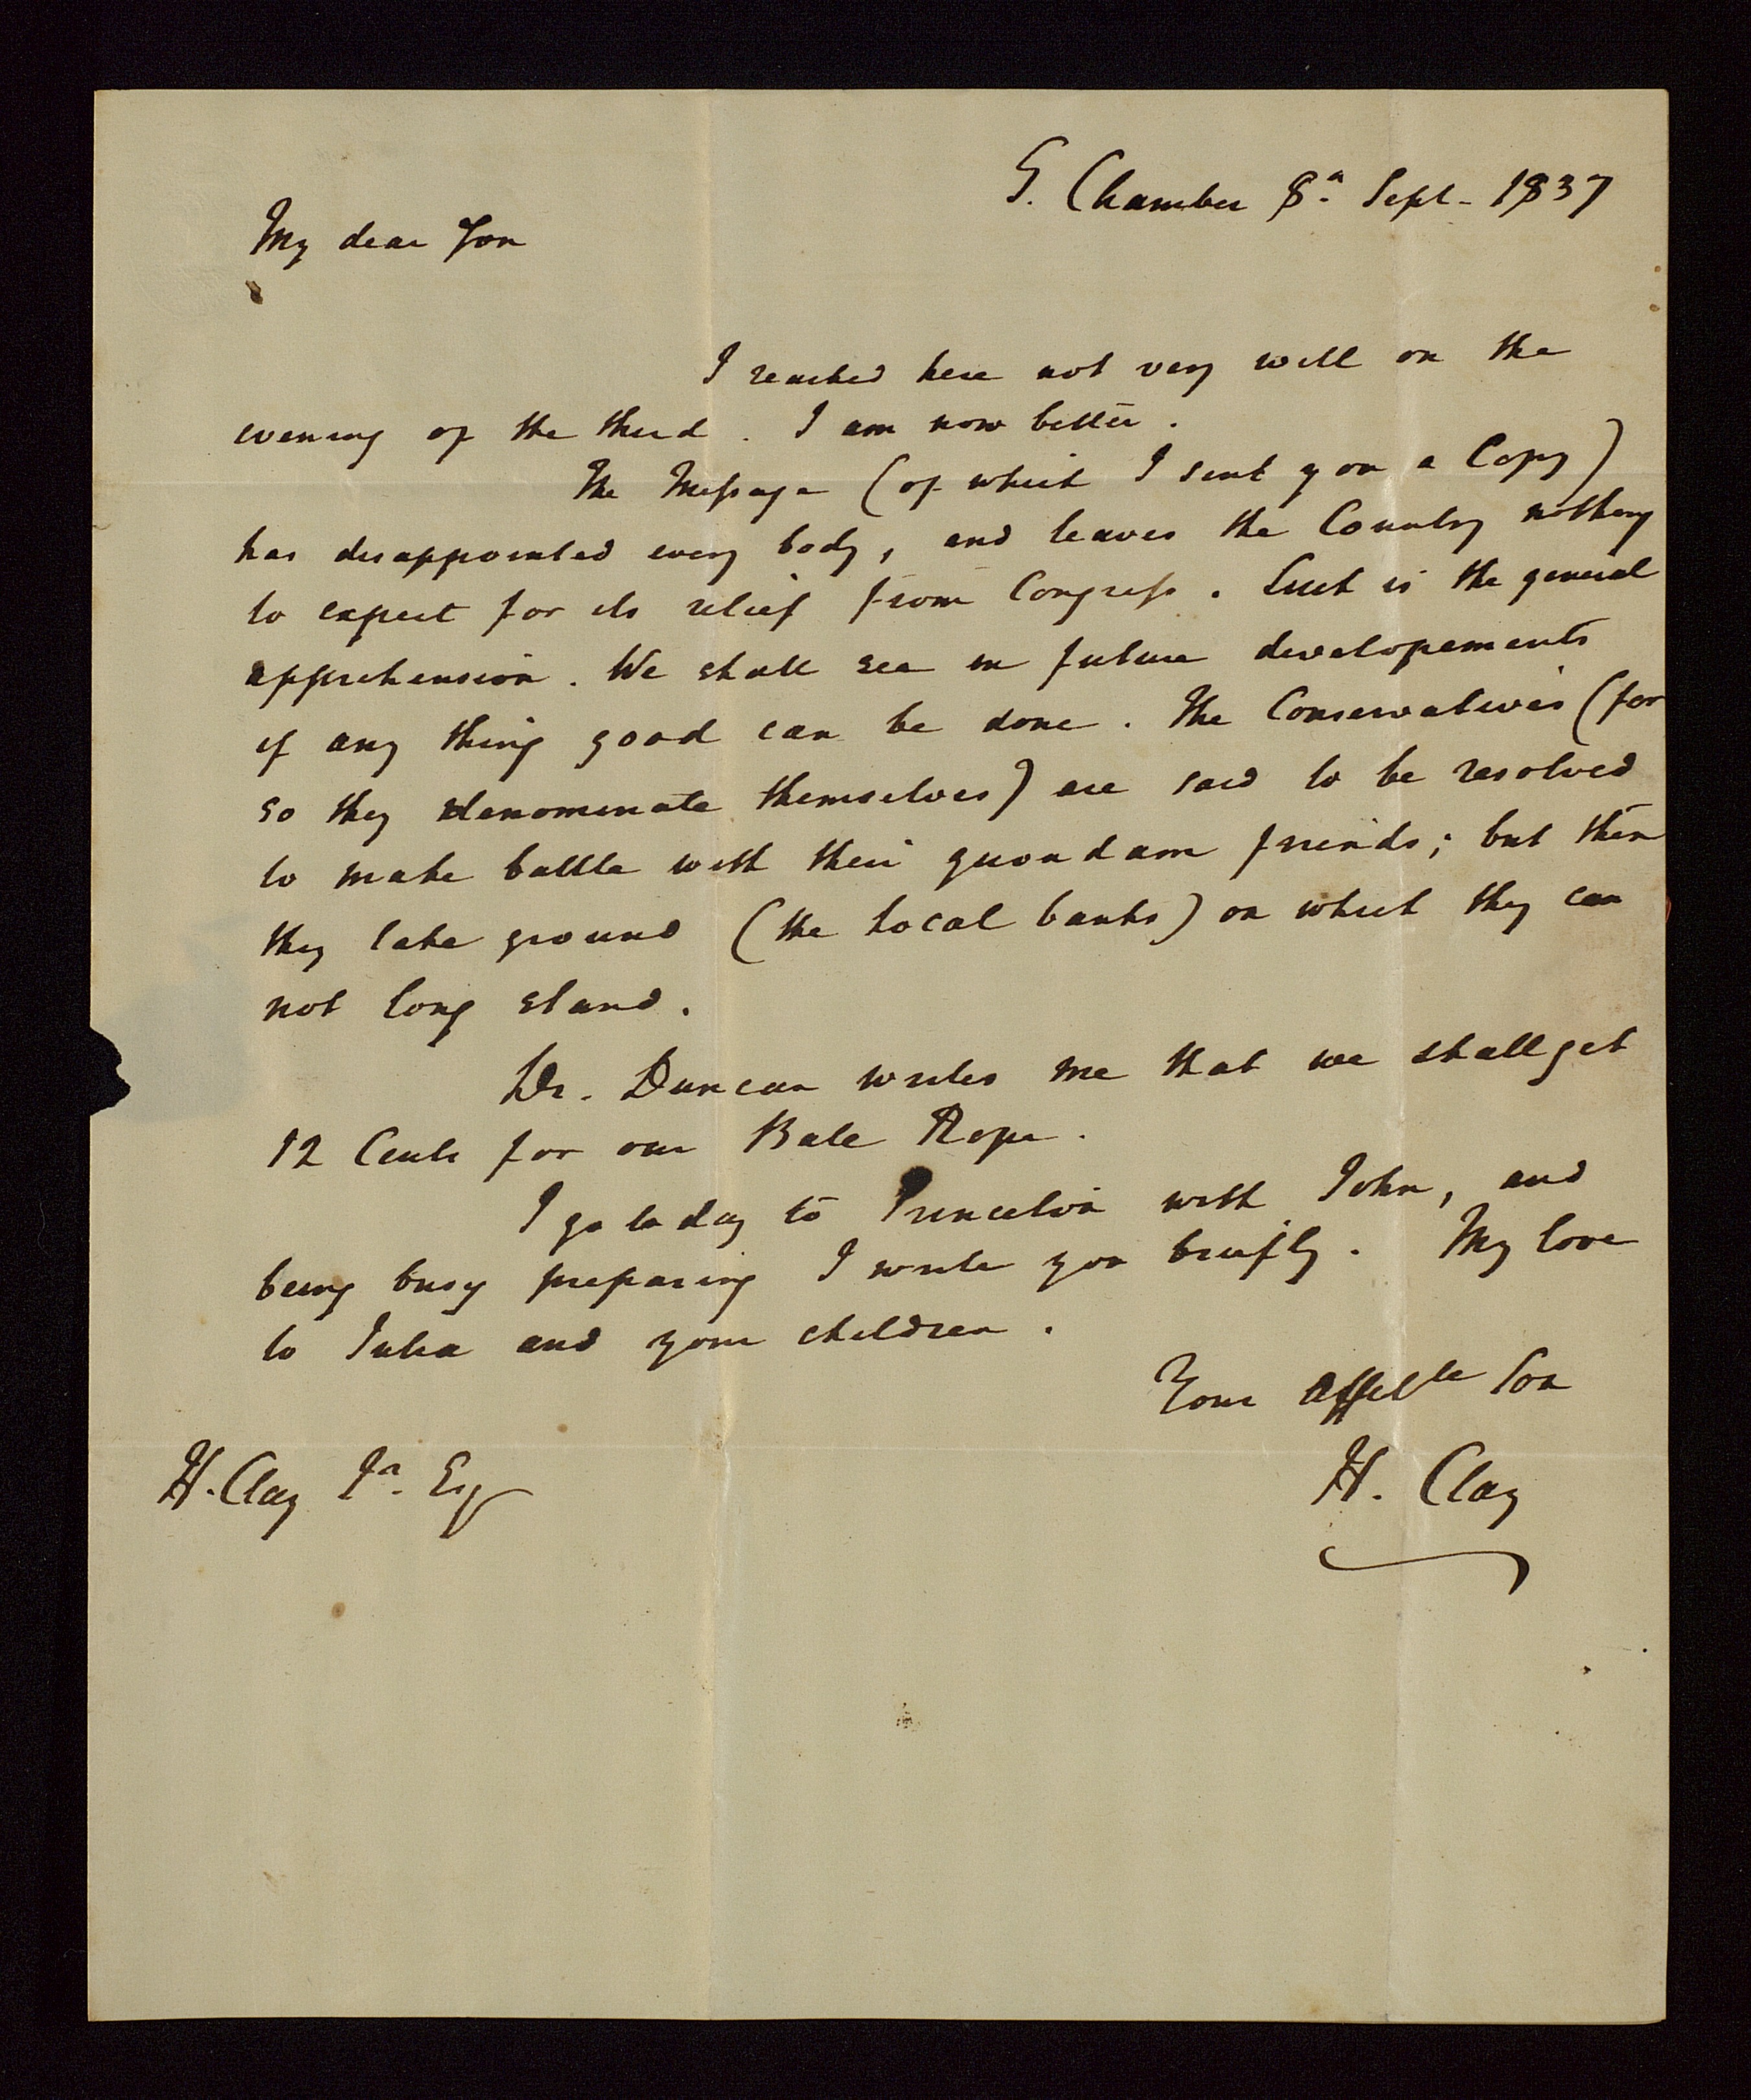 S. Chamber 8h. Sept. 1837
My dear Son
I reached here not very well on the
evening of the third. I am now better.
The Message (of which I sent you a Copy)
has disappointed every body, and leaves the Country nothing
to expect for its relief from Congress. Such is the general
apprehension. We shall see in future developements
if any thing good can be done. The Conservatives (for
so they denominate themselves) are said to be resolved
to make battle with their quondam friends; but then
they take ground (the local banks) on which they can
not long stand.
Dr. Duncan writes me that we shall get
12 Cents for our Bale Rope.
I go to day to Princeton with John, and
being busy preparing I write you briefly. My love
to Julia and your children.
Your affecte Son
H. Clay Jr. Esq
H. Clay